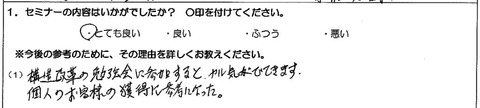 1. セミナーの内容はいかがでしたか? 〇印を付けてください。
・とても良い ・良い ・ふつう ・悪い
※今後の参考のために、その理由を詳しくお教えください。
(1) 構造改革の勉強会に参加すると、ヤル気がでてきます.
個人のお客様の獲得に参考になった。